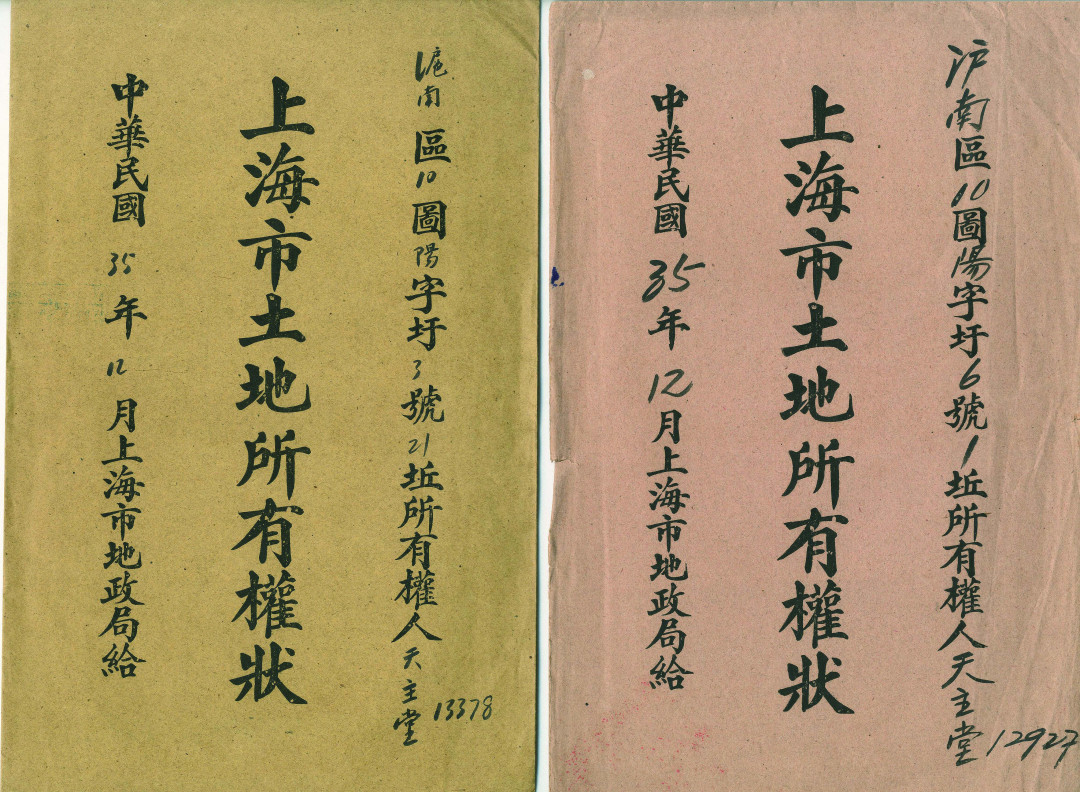 滬南區10圖陽字圩3號21坵所有權人天主堂
13378
上海市土地所有權狀
中華民國35年12月上海市地政局給
沪南區10圖陽字圩6號1坵所有權人天主堂
12927
上海市土地所有權狀
中華民國35年12月上海市地政局給